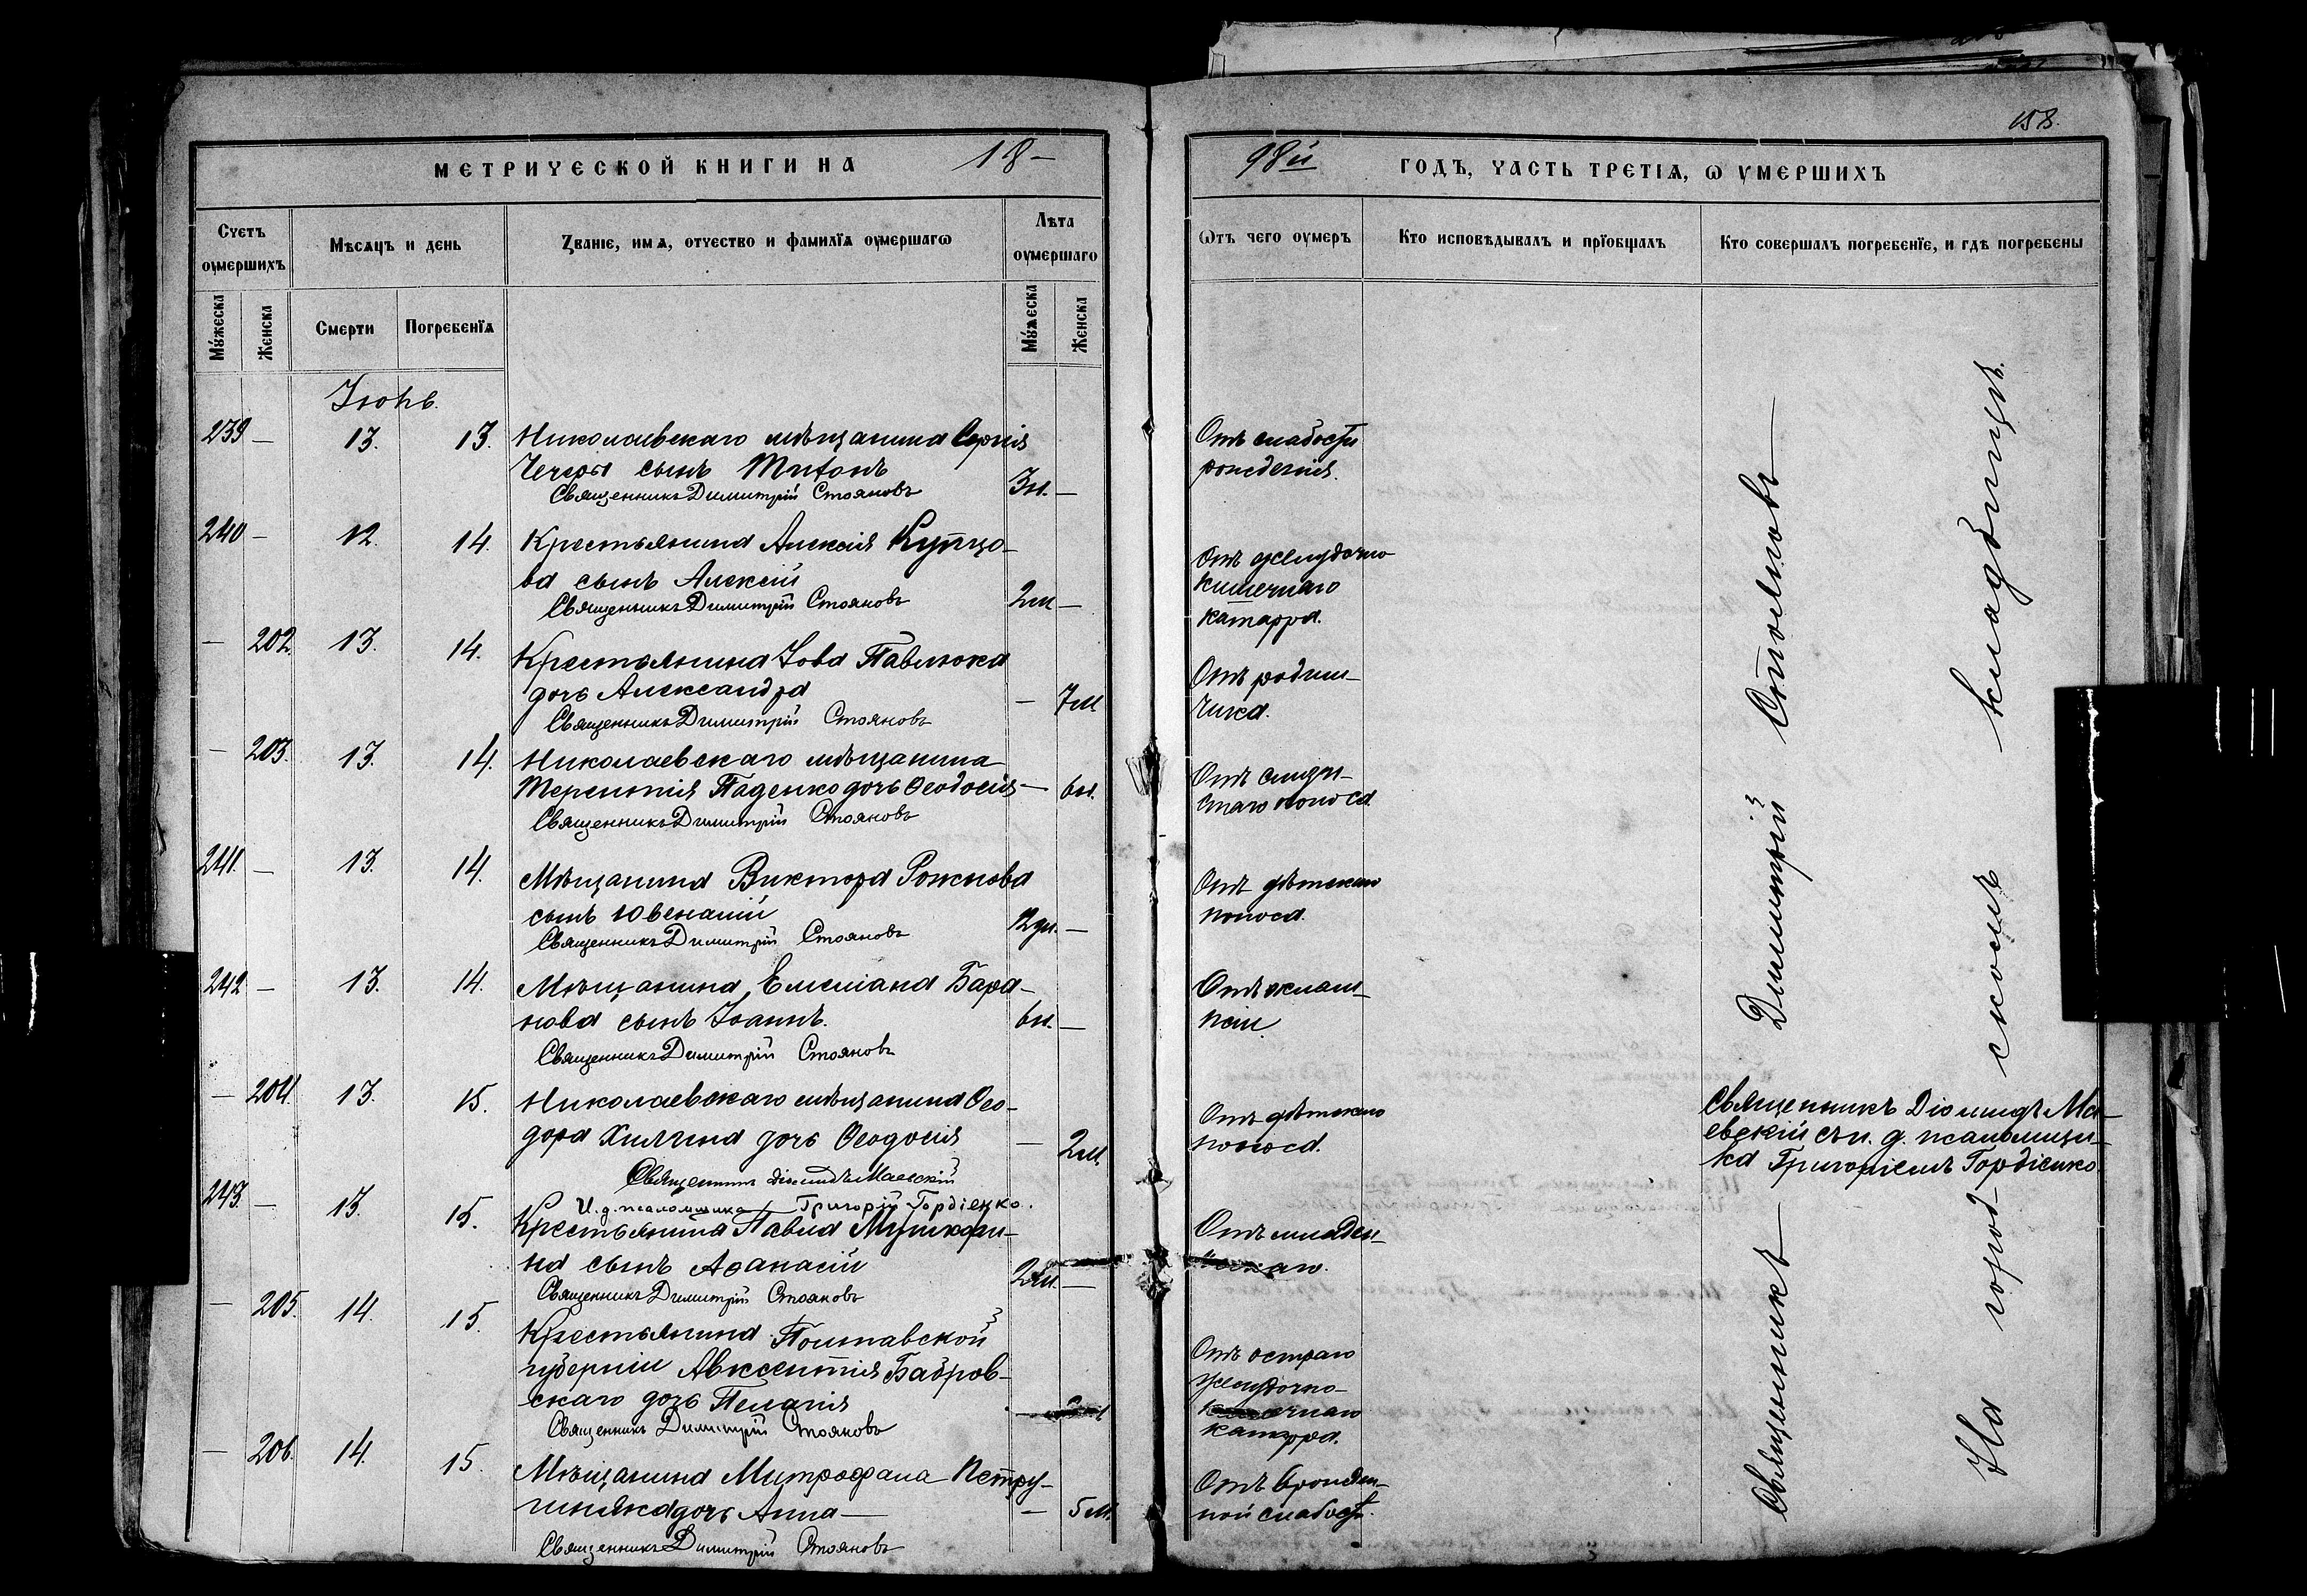 158.
МЕТРИЧЕСКОЙ КНИГИ НА 18–
98й ГОДЪ, ЧАСТЬ ТРЕТІѦ, Ѡ ѸМЕРШИХЪ
Счетъ ѹмершихъ
Мѣсѧцъ и день
Званіе, имѧ, отчество и фамилїѧ ѹмершагѡ
Лѣта ѹмершаго
Ѿтъ чего ѹмеръ
Кто исповѣдывалъ и прїобщалъ
Кто совершалъ погребенїе, и гдѣ погребены
Мѹжеска
Женска
Смерти
Погребенїѧ
Мѹжеска
Женска
Іюнь.
239 – 13. 13. Николаевскаго мѣщанина Сергія
Чечеры сынъ Титонъ
Священникъ Димитрій Стояновъ
3н. –
Отъ слабости
рожденія.
240 – 12. 14. Крестьянина Алексія Купцо-
ва сынъ Алексій
Священникъ Димитрій Стояновъ
2м –
Отъ желудочно
кишечнаго
катарра.
– 202. 13. 14. Крестьянина Іова Павлюка
дочь Александра
Священникъ Димитрій Стояновъ
– 7м
Отъ родим-
чика.
– 203. 13. 14. Николаевскаго мѣщанина
Терентія Паденко дочь Ѳеодосія –
Священникъ Димитрій Стояновъ
6н.
Отъ слизи-
стаго поноса.
241. – 13. 14. Мѣщанина Виктора Рожнова
сынъ Ювеналій
Священникъ Димитрій Стояновъ
12дн. –
Отъ дѣтскаго
поноса.
242 – 13. 14. Мѣщанина Емеліана Бара-
нова сынъ Іоаннъ.
Священникъ Димитрій Стояновъ
6н. –
Отъ эклам-
псіи
– 204. 13. 15. Николаевскаго мѣщанина Ѳео-
дора Хилчина дочь Ѳеодосія
Священникъ Діомидъ Маевскій
И. д. псаломщика Григорій Гордіенко.
– 2м.
Отъ дѣтскаго
поноса.
Священникъ Діомидъ Ма-
евскій съ и. д. псаломщи-
ка Григоріемъ Гордіенко
243. – 13. 15. Крестьянина Павла
на сынъ Аѳанасій
Священникъ Димитрій Стояновъ
2м. –
Отъ младен-
– 205. 14. 15. Крестьянина Полтавской
губерніи Авксентія Бабров-
скаго дочь Пелагія
Священникъ Димитрій Стояновъ
Отъ остраго
желудочно-
кишечнаго
катарра.
– 206. 14. 15. Мѣщанина Митрофана Петру-
дочь Анна –
Священникъ Димитрій Стояновъ
– 5м.
Отъ врожден-
ной слабости.
Священникъ – Димитрій Стояновъ –
На город– скомъ кладбищѣ.